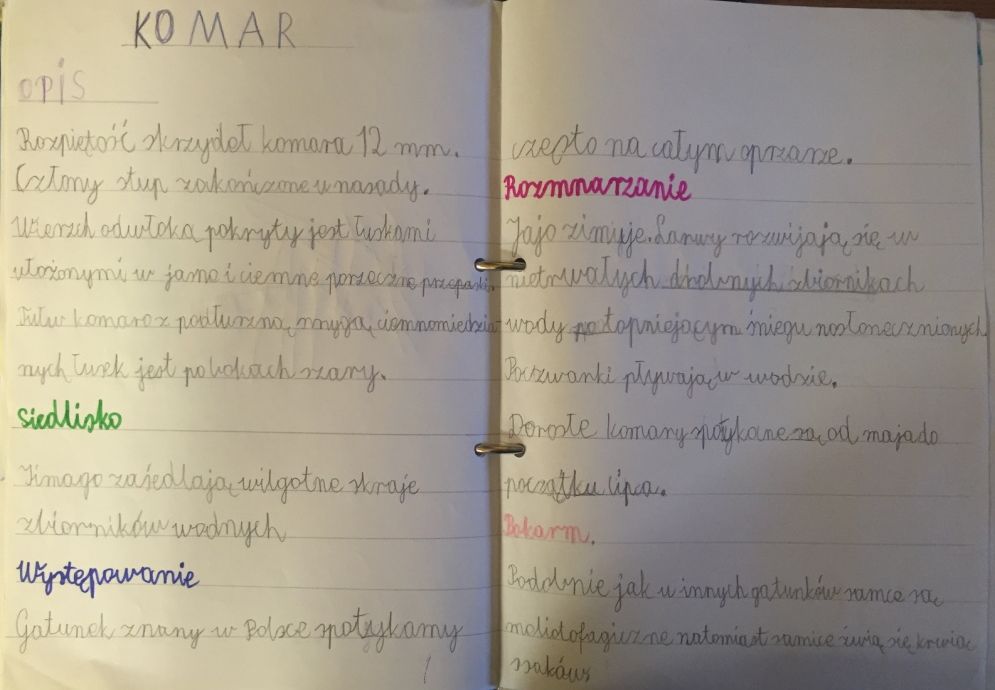 KOMAR
OPIS
Rozpiętość skrzydeł komara 12 mm.
Człony stup zakończone u nasady.
Wierzch odwłoka pokryty jest łuskami
ułożonymi w jasne i ciemne porzeczne przepaski.
Tułw komara z podłużną smugą ciemnomiedzia
nych łusek jest po bokach szary.
Siedlisko
Iimago zasiedlają wilgotne skraje
zbiorników wodnych
Występowanie
Gatunek znany w Polsce spotykamy
1
często na całym oprzarze.
Rozmnarzanie
Jajo zimuje. Larwy rozwijają się w
nietrwałych drobnych zbiornikach
wody po topniejącym śniegu nasłonecznionych.
Poczwarki pływają w wodzie.
Dorosłe komary spotykane są od maja do
początku lipca.
Pokarm.
Podobnie jak u innych gatunków samce są
melitofagiczne natomiast samice żwią się krwią
ssaków